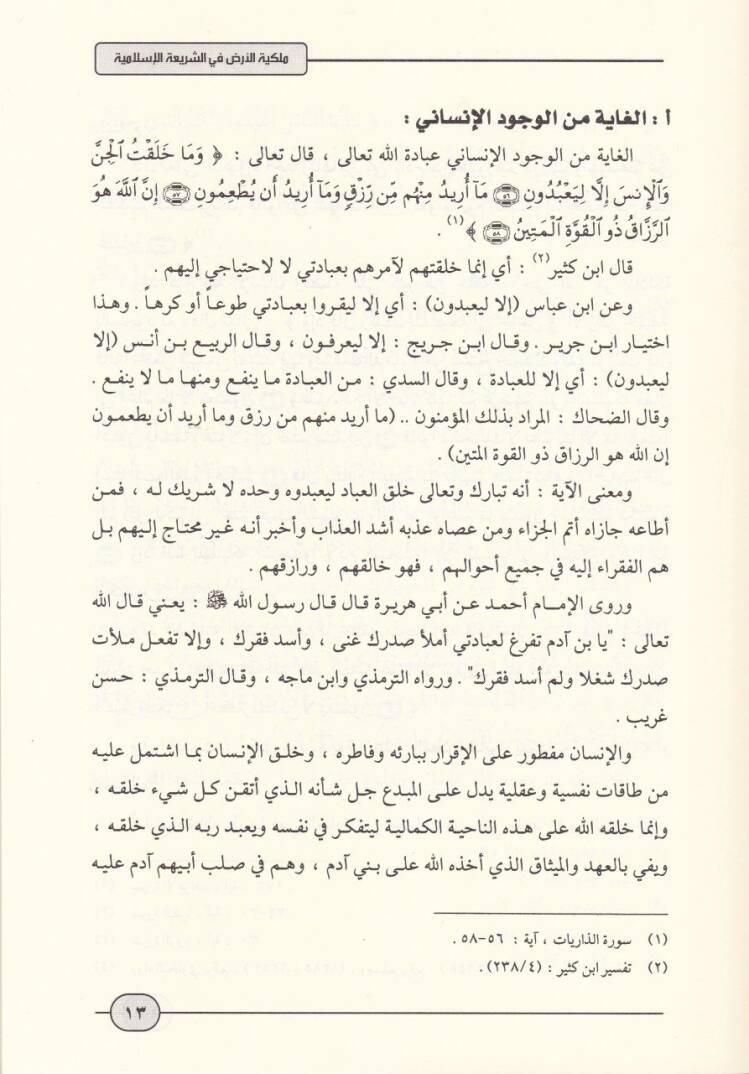 ملكية الأرض في الشريعة الإسلامية
أ : الغاية من الوجود الإنساني :
الغاية من الوجود الإنساني عبادة الله تعالى ، قال تعالى : ﴿ وَمَا خَلَقْتُ ٱلْجِنَّ
وَٱلْإِنسَ إِلَّا لِيَعْبُدُونِ ۝٥٦ مَآ أُرِيدُ مِنْهُم مِّن رِّزْقٍ وَمَآ أُرِيدُ أَن يُطْعِمُونِ ۝٥٧ إِنَّ ٱللَّهَ هُوَ
ٱلرَّزَّاقُ ذُو ٱلْقُوَّةِ ٱلْمَتِينُ ۝٥٨ ﴾ (١) .
قال ابن كثير(٢) : أي إنما خلقتهم لآمرهم بعبادتي لا لاحتياجي إليهم .
وعن ابن عباس (إلا ليعبدون) : أي إلا ليقروا بعبادتي طوعاً أو كرهاً . وهذا
اختيار ابن جرير . وقال ابن جريج : إلا ليعرفون ، وقال الربيع بن أنس (إلا
ليعبدون) : أي إلا للعبادة ، وقال السدي : من العبادة ما ينفع ومنها ما لا ينفع .
وقال الضحاك : المراد بذلك المؤمنون .. (ما أريد منهم من رزق وما أريد أن يطعمون
إن الله هو الرزاق ذو القوة المتين) .
ومعنى الآية : أنه تبارك وتعالى خلق العباد ليعبدوه وحده لا شريك له ، فمن
أطاعه جازاه أتم الجزاء ومن عصاه عذبه أشد العذاب وأخبر أنه غير محتاج إليهم بل
هم الفقراء إليه في جميع أحوالهم ، فهو خالقهم ، ورازقهم .
وروى الإمام أحمد عن أبي هريرة قال قال رسول الله ﷺ : يعني قال الله
تعالى : "يا بن آدم تفرغ لعبادتي أملأ صدرك غنى ، وأسد فقرك ، وإلا تفعل ملأت
صدرك شغلا ولم أسد فقرك" . ورواه الترمذي وابن ماجه ، وقال الترمذي : حسن
غريب .
والإنسان مفطور على الإقرار ببارئه وفاطره ، وخلق الإنسان بما اشتمل عليه
من طاقات نفسية وعقلية يدل على المبدع جل شأنه الذي أتقن كل شيء خلقه ،
وإنما خلقه الله على هذه الناحية الكمالية ليتفكر في نفسه ويعبد ربه الذي خلقه ،
ويفي بالعهد والميثاق الذي أخذه الله على بني آدم ، وهم في صلب أبيهم آدم عليه
(١) سورة الذاريات ، آية : ٥٦-٥٨ .
(٢) تفسير ابن كثير : (٢٣٨/٤) .
١٣